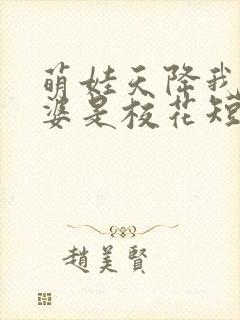 萌娃天降我
婆是校花短
趙美賢